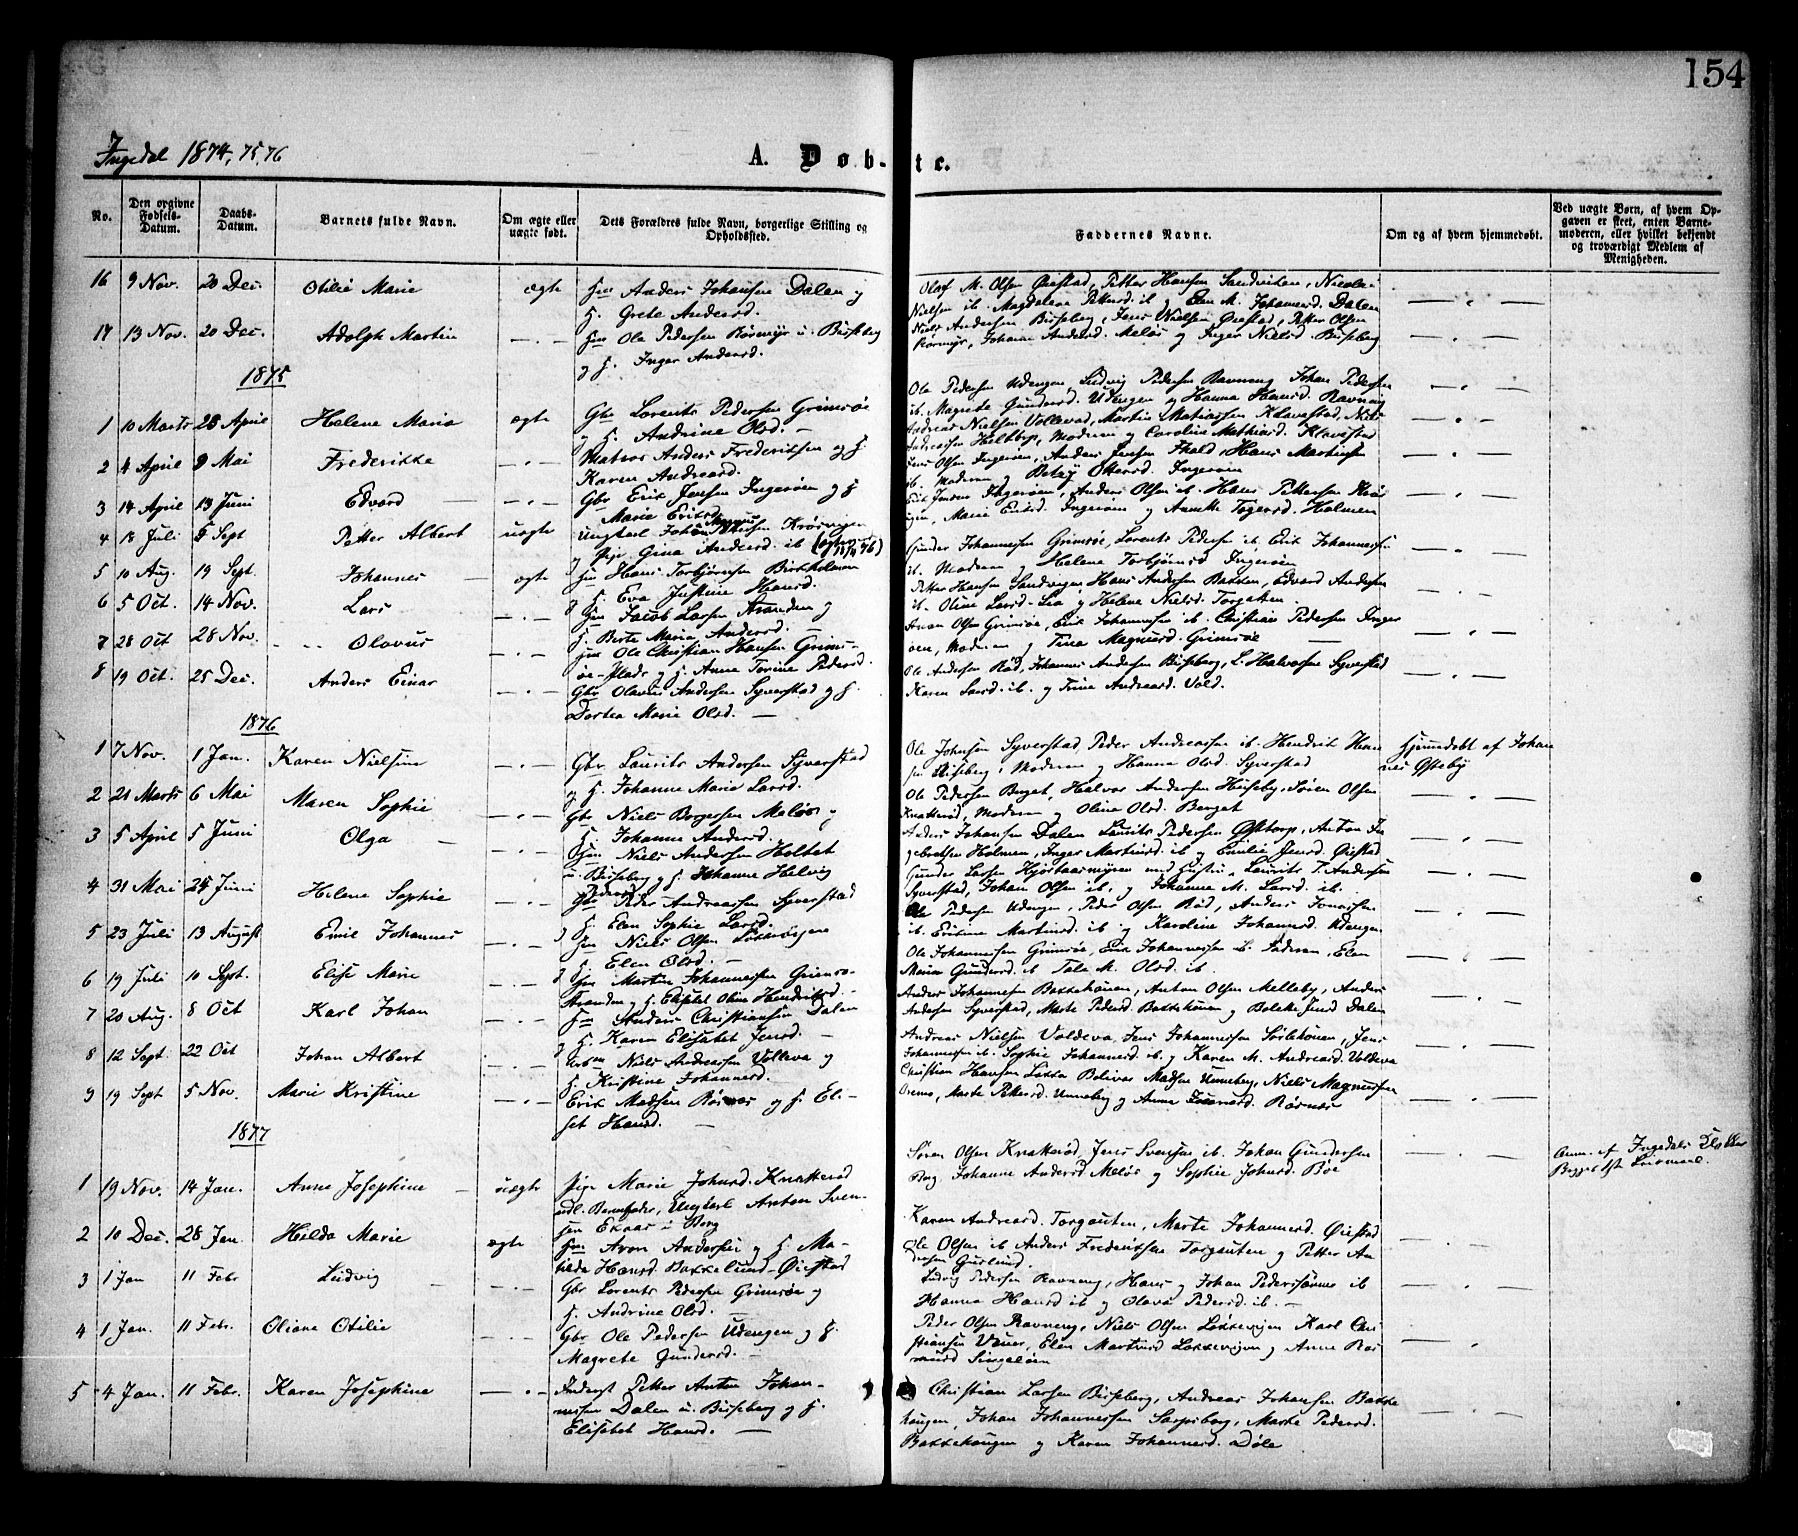 154
Ingedal 1874, 75, 76
A. Døbte.
No.
Den opgivne Fødsels-Datum.
Daabs-Datum.
Barnets fulde Navn.
Om ægte eller uægte født.
Dets Forældres fulde Navn, borgerlige Stilling og Opholdssted.
Faddernes Navne.
Om og af hvem hjemmedøbt.
Ved uægte Børn, af hvem Opgaven er skeet, enten Barnemoderen, eller hvilket bekjendt og troværdigt Medlem af Menigheden.
16 9 Nov. 20 Dec. Otilie Marie ægte Anders Johansen Dalen og
H. Grete Andersd.
Olaf M. Olsen Øiestad, Petter Hansen Sandviken, Nicolai
Nielsen ib. Magdelene Pettersd. ib og Elen M. Johannesd. Dalen
17 13 Nov. 20 Dec. Adolph Martin — . — Ole Pedersen Rørmyr u. Buseberg
og H. Inger Andersd.
Niels Andersen Buseberg, Jens Nielsen Øiestad, Petter Olsen
Rørmyr, Johanne Andersd. Meløs og Inger Nielsd. Buseberg
1875
1 10 Marts 25 April Helene Maria ægte Gbr Lorents Pedersen Grimsøe
og H. Andrine Olsd. —
Ole Pedersen Udengen, Ludvig Pedersen Ravneng Johan Pedersen
ib. Magrete Gundersd. Udengen og Hanna Hansd. Ravneng
2 4 April 9 Mai Frederikke — . — Matros Anders Frederiksen og H.
Karen Andreasd.
Andreas Nielsen Vollevad, Martin Mathiassen Klavestad, Niels
Andreassen Holtorp, Moderen og Caroline Mathiasd. Klavestad
3 14 April 13 Juni Edvard — . — Gbr Erik Jensen Ingerøen og H
Marie Eriksd.
Jens Olsen Ingerøen, Anders Jensen Skald, Hans Martinsen
ib. Moderen og Betzy Olsersd. Ingerøen
4 18 Juli 5 Sept Petter Albert uægte Ungkarl Johan Magnus Pettersen Krosvigen
og Pige Gina Andersd. ib
Erik Jensen Ingerøen, Anders Olsen ib. Hans Pettersen
Marie Eriksd. Ingerøen og Annette Togersd. Holmen
5 10 Aug. 19 Sept. Johannes ægte Hans Torbjørnsen Birkholmen
og H. Eva Justine Hansd.
Gunder Johannessen Grimsøe, Lorents Pedersen ib. Erik Johannessen
ib. Moderen og Helene Torbjørnsd Ingerøen
6 5 Oct. 14 Nov. Lars — . — Jacob Larsen Stranden og
H. Berte Maria Andersd. —
Petter Hansen Sandvigen, Hans Andersen Bakken, Edvard Andersen
ib. Oline Larsd. Lia og Helene Nielsd. Torgauten.
7 28 Oct 28 Nov. Olavus — . — Ole Christian Hansen Grims-
øe-Plads og H. Anne Torine Pedersd.
Aron Olsen Grimsøe, Erik Johannessen ib. Christian Pedersen Inger
øen, Moderen og Tina Magnusd. Grimsøe
8 19 Oct. 25 Dec. Anders Einar — . — Gbr Olavus Andersen Syverstad og H.
Dortea Marie Olsd. —
Ole Andersen Rød, Johannes Andersen Buseberg, L. Halvorsen Syverstad
Karen Larsd. ib. og Trine Andreasd. Vold.
1876
1 7 Nov. 1 Jan. Karen Nielsine — . — Gbr. Laurits Andersen Syverstad
og H. Johanne Marie Larsd.
Ole Johnsen Syverstad, Peder Andreassen ib. Hendrik Han
sen Moderen og Hanna Olsd. Syverstad
Hjemmedøbt af Johan
nes Østeby
2 21 Marts 6 Mai Maren Sophie — . — Gbr Niels Borgersen Meløs og
H. Johanne Andersd.
Ole Pedersen Berget, Halvor Andersen Huseby, Søren Olsen
Knatterød, Moderen og Olina Olsd. Berget
3 5 April 5 Juni Olga — . — Niels Andersen Holtet
u. Buseberg og H. Johanne Helvig
Pedersd.
Anders Johansen Dalen Laurits Pedersen Østtorp, Anton In
gebretsen Holmen, Inger Martinsd. ib og Emilie Jensd. Øiestad
4 31 Mai 24 Juni Helene Sophie Gbr Peder Andreassen Syverstad
H. Elen Sophie Larsd.
Gunder Larsen Hjørtaasmyren med Hustru, Laurits T. Andersen
Syverstad, Johan Olsen ib. og Johanne M. Larsd. ib.
5 23 Juli 13 August Emil Johannes — . — Niels Olsen Løkkevigen
og H. Elen Olsd. —
Ole Pedersen Udengen, Peder Olsen Rød, Anders Jonassen
ib. Eritine Martinsd. ib og Karoline Johannesd. Udengen
6 19 Juli 10 Sept. Elise Marie Martin Johannessen Grimsø-
Stranden og H. Elisabet Oline Hendriksd.
Ole Johannessen Grimsøe, Erik Johannessen ib. Faderen, Elen
Maria Gundersd. ib Tale M. Olsd. ib.
7 20 Aug. 8 Oct Karl Johan — . — Anders Christiansen Dalen
og H. Karen Elisabet Jensd. —
Anders Johannesen Bakkehouen, Anton Olsen Melleby, Anders
Andersen Syverstad, Marte Pedersd. Bakkehouen og Bolette Jensd Dalen
8 12 Sept. 22 Oct Johan Albert — . — Niels Andreassen Volleva og
H. Kristine Johannesd.
Andreas Nielsen Voldeva, Jens Johannessen Sørlehouen, Jens
Johannessen ib. Sophie Johannesd. ib. og Karen M. Andreasd. Voldeva
9 19 Sept 5 Nov. Marie Kristine — . — Erik Madsen Røsnes og H. Eli-
set Hansd. —
Christian Hansen Løkka Bolivar Madsen Unneberg, Niels Magnussen
Oremo, Marte Pettersd. Unneberg og Anne Røsnæs
1877
1 19 Nov. 14 Jan. Anne Josephine — uægte Pige Marie Johnsd. Knatterød
udl. Barnefader, Ungkarl Anton Sven-
sen Eknas i Borg
Søren Olsen Knatterød, Jens Svensen ib. Johan Gundersen
Berg. Johanne Andersd Meløs og Sophie Johnsd. Bøe
Anm. af Ingedals Klokker
2 10 Dec. 28 Jan. Hilda Marie ægte Aron Andersen og H. Ma-
tilda Hansd. Bakkelund-Øiestad
Karen Andreasd. Torgauten, Marte Johannesd. Øiestad
Ole Olsen ib. Anders Frederiksen Torgauten og Petter An
dresen Guslund.
3 1 Jan 11 Febr Ludvig — . — Gbr Lorents Pedersen Grimsøe og
H. Andrine Olsd. —
Ludvig Pedersen Ravneng, Hans og Johan Pedersønner ib
Hanna Hansd ib og Olava Pedersd. ib. —
4 1 Jan. 11 Febr. Oliane Otilie — . — Gbr Ole Pedersen Udengen og H.
Magrete Gundersd. —
Peder Olsen Ravneng, Niels Olsen Løkkevigen Karl Chri
stiansen Elen Martinsd Løkkevigen og Anne Ras
musd Singeløen
5 4 Jan. 11 Febr. Karen Josephine — . — Petter Anton Johan-
nessen Dalen u. Buseberg og H.
Elisabet Hansd. —
Christian Larsen Buseberg, Andreas Johansen Bakke
haugen, Johan Johannessen Sarpsborg, Marte Pedersd.
Bakkehaugen og Karen Johannesd.